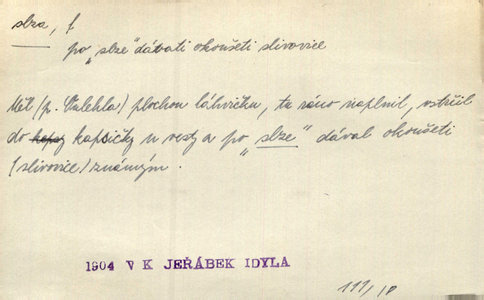 slza, f
po „slze" dávati okoušeti slivovice
Měl (p. Vulehla) plochou láhvičku, tu ráno naplnil, vstrčil
do kapsičky u vesty a po „slze" dával okoušeti
(slivovice) známým.
1904 V K JEŘÁBEK IDYLA
111/18